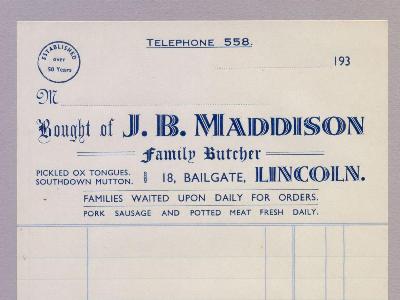 TELEPHONE 558.
ESTABLISHED
over
50 Years
193
M
Bought of J. B. MADDISON
Family Butcher
PICKLED OX TONGUES.
SOUTHDOWN MUTTON.
18, BAILGATE, LINCOLN.
FAMILIES WAITED UPON DAILY FOR ORDERS.
PORK SAUSAGE AND POTTED MEAT FRESH DAILY.